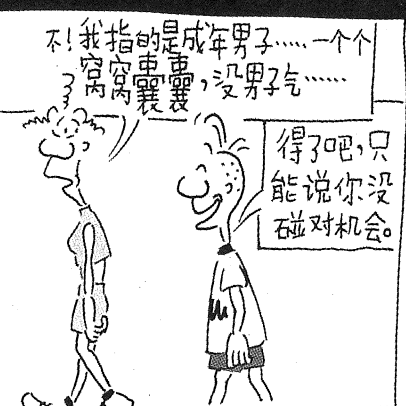 不！我指的是成年男子……一个个
窝窝囊囊，没男子气……
得了吧，只
能说你没
碰对机会。